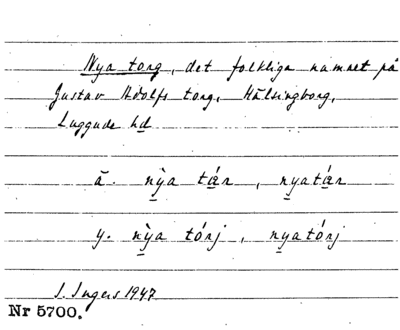 Nya torg, det folkliga namnet på
Gustav Adolfs torg, Hälsingborg,
Luggude hd
ä. nỳa tár, nyatár
y. nỳa tórj, nyatórj
I. Ingers 1947
Nr 5700.